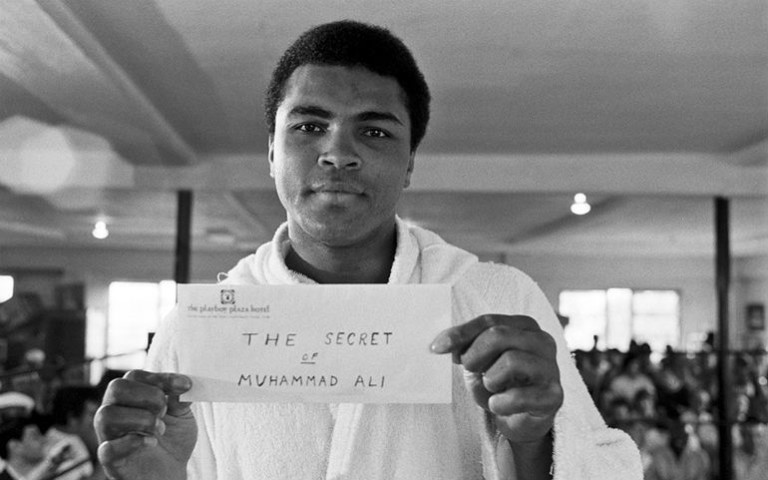 the playboy plaza hotel
THE SECRET
OF
MUHAMMAD ALI